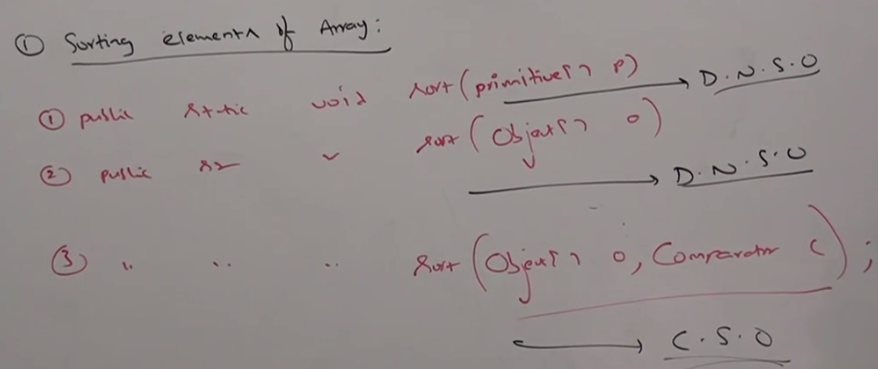 ① Sorting elements of Array:
① public static void sort(primitive[] p) → D.N.S.O
② public st v sort(Object[] o)
→ D.N.S.O
③ " " " sort(Object[] o, Comparator c);
→ C.S.O